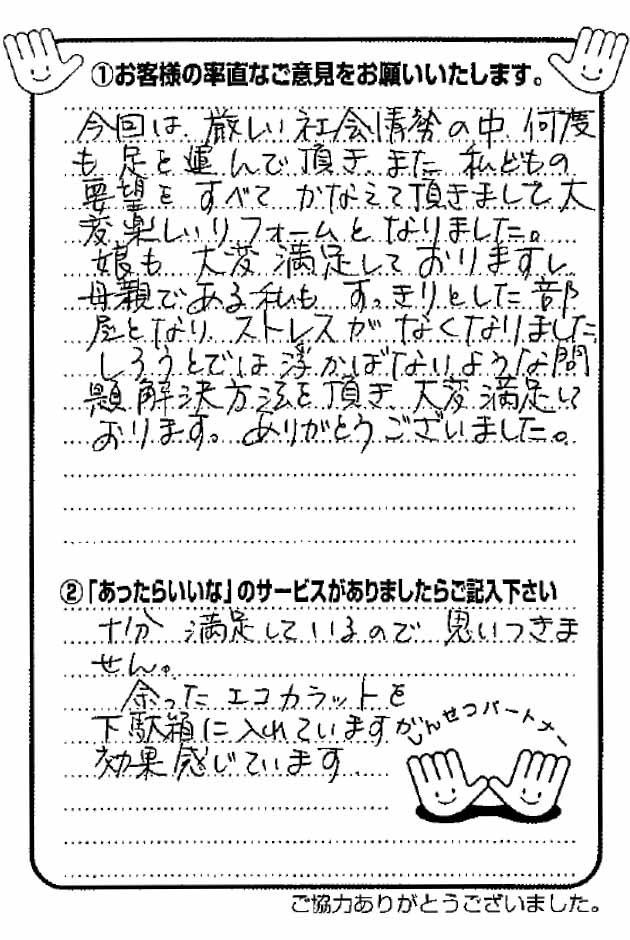 ①お客様の率直なご意見をお願いいたします。
今回は、厳しい社会情勢の中、何度
も足を運んで頂き、また、私どもの
要望をすべてかなえて頂きまして、大
変楽しいリフォームとなりました。
娘も、大変満足しておりますし、
母親である私も、すっきりとした部
屋となり、ストレスがなくなりました。
しろうとでは浮かばないような問
題解決方法を頂き、大変満足して
おります。ありがとうございました。
②「あったらいいな」のサービスがありましたらご記入下さい
十分満足しているので、思いつきま
せん。
余ったエコカラットを
下駄箱に入れていますが
効果感じています
しんせつパートナー
ご協力ありがとうございました。